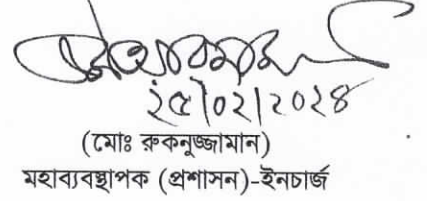 ২৫/০২/২০২৪
(মোঃ রুকনুজ্জামান)
মহাব্যবস্থাপক (প্রশাসন)-ইনচার্জ